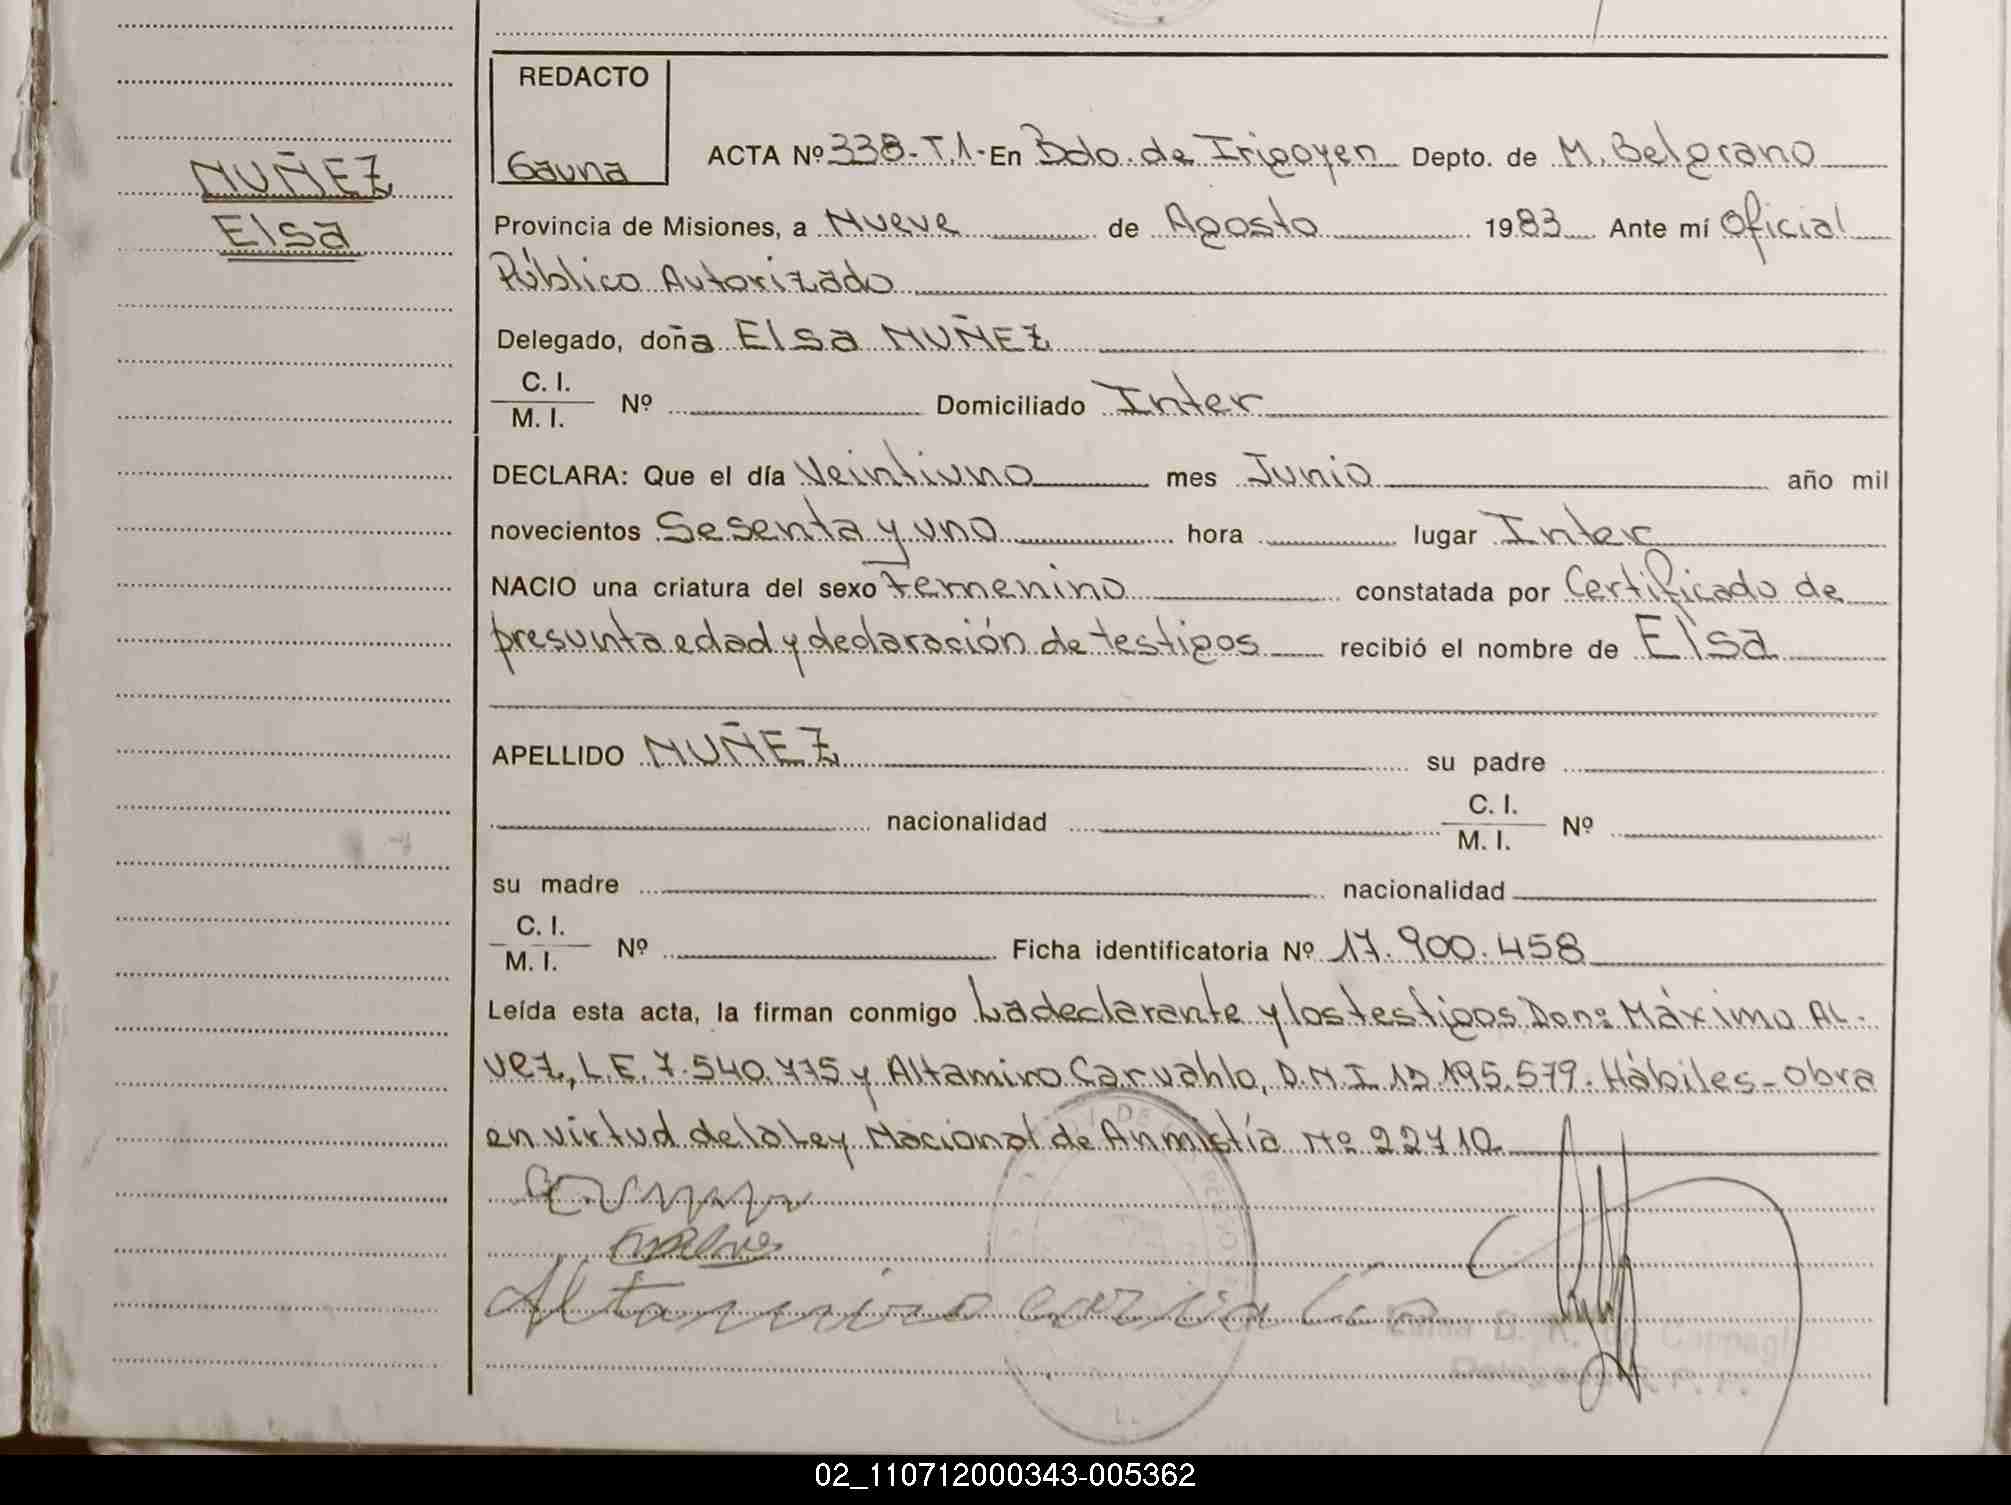 REDACTO
Gauna
NUÑEZ
Elsa
ACTA Nº 338-T.1- En Bdo. de Irigoyen Depto. de M. Belgrano
Provincia de Misiones, a Nueve de Agosto 1983 Ante mí Oficial
Público Autorizado
Delegado, doña Elsa NUÑEZ
C. I.
M. I. Nº Domiciliado Inter
DECLARA: Que el día Veintiuno mes Junio año mil
novecientos Sesenta y uno hora lugar Inter
NACIO una criatura del sexo Femenino constatada por Certificado de
presunta edad y declaración de testigos recibió el nombre de Elsa
APELLIDO NUÑEZ su padre
nacionalidad C. I.
M. I. Nº
su madre nacionalidad
C. I.
M. I. Nº Ficha identificatoria Nº 17.900.458
Leída esta acta, la firman conmigo La declarante y los testigos Don: Máximo AL-
vez, L.E. 7.540.775 y Altamiro Carvahlo, D.N.I. 195.579. Hábiles- obra
en virtud de la Ley Nacional de Anmistía Nº 22710
Altamiro
02_110712000343-005362